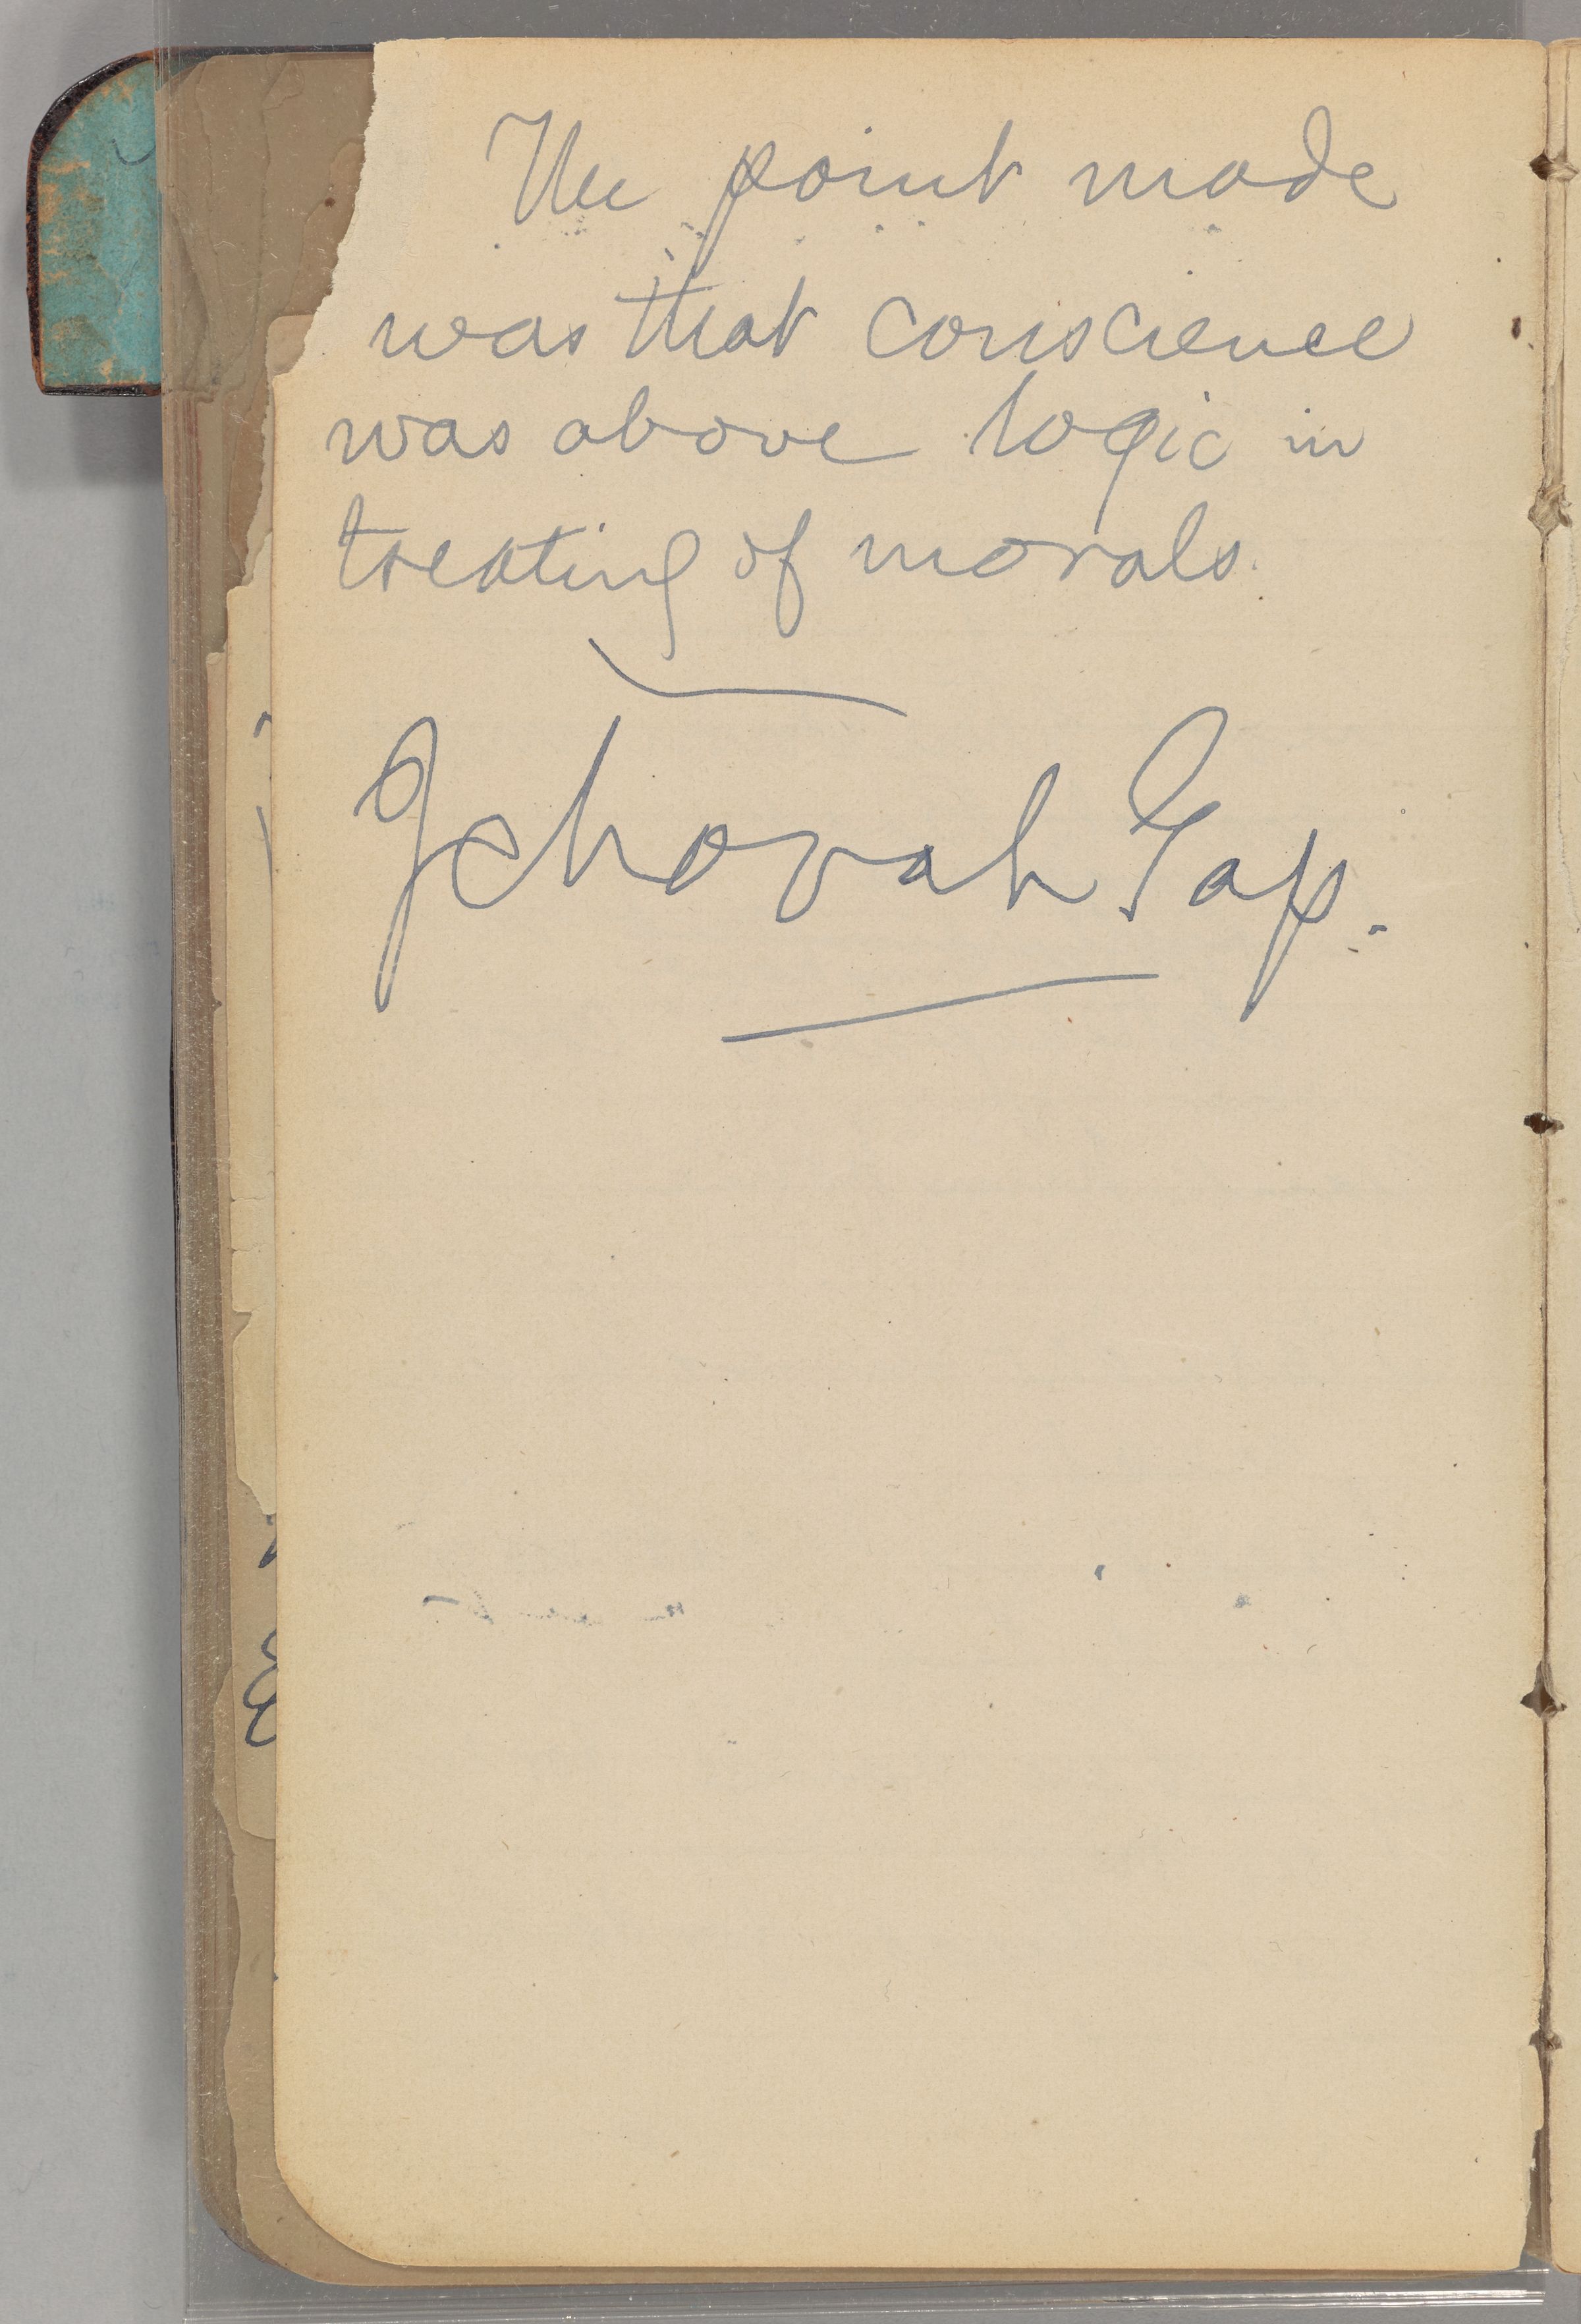 The point made
was that conscience
was above logic in
treating of morals.
Jehovah Gap.